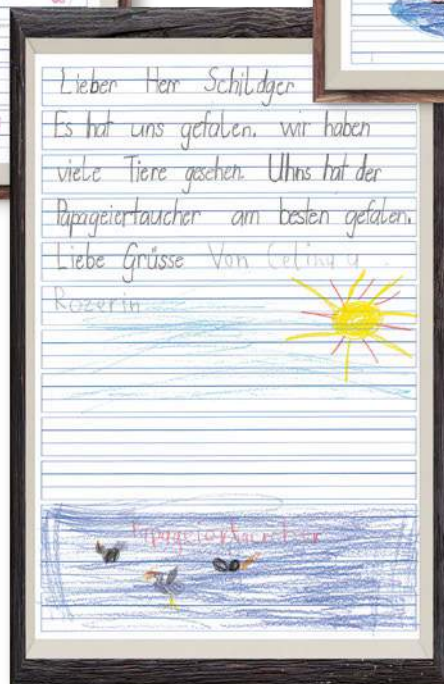 Lieber Herr Schildger
Es hat uns gefalen. wir haben
viele Tiere gesehen. Uhns hat der
Papageiertaucher am besten gefalen.
Liebe Grüsse Von
Rozerin